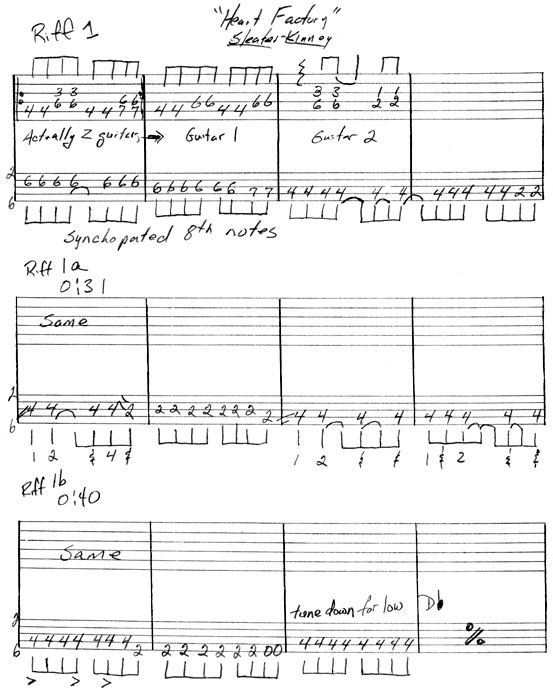 "Heart Factory"
Riff 1
Sleater-Kinney
3 3 6 6
4 4 6 6 4 4 7 7
4 4 6 6 4 4 6 6
3 3 1 1
6 6 2 2
Actually 2 guitars → Guitar 1 Guitar 2
2
6 6 6 6 6 6 6 6 6 6 6 6 6 7 7 4 4 4 4 4 4 4 4 4 4 4 2 2
6
Synchopated 8th notes
Riff 1a
0:31
Same
2
4 4 4 4 2 2 2 2 2 2 2 2 2 4 4 4 4 4 4 4 4 4
6
1 2 & 4 & 1 2 & & 1 & 2 & &
Riff 1b
0:40
Same
tune down for low Db
2
4 4 4 4 4 4 4 2 2 2 2 2 2 2 0 0 4 4 4 4 4 4 4 4 %
6
> > >